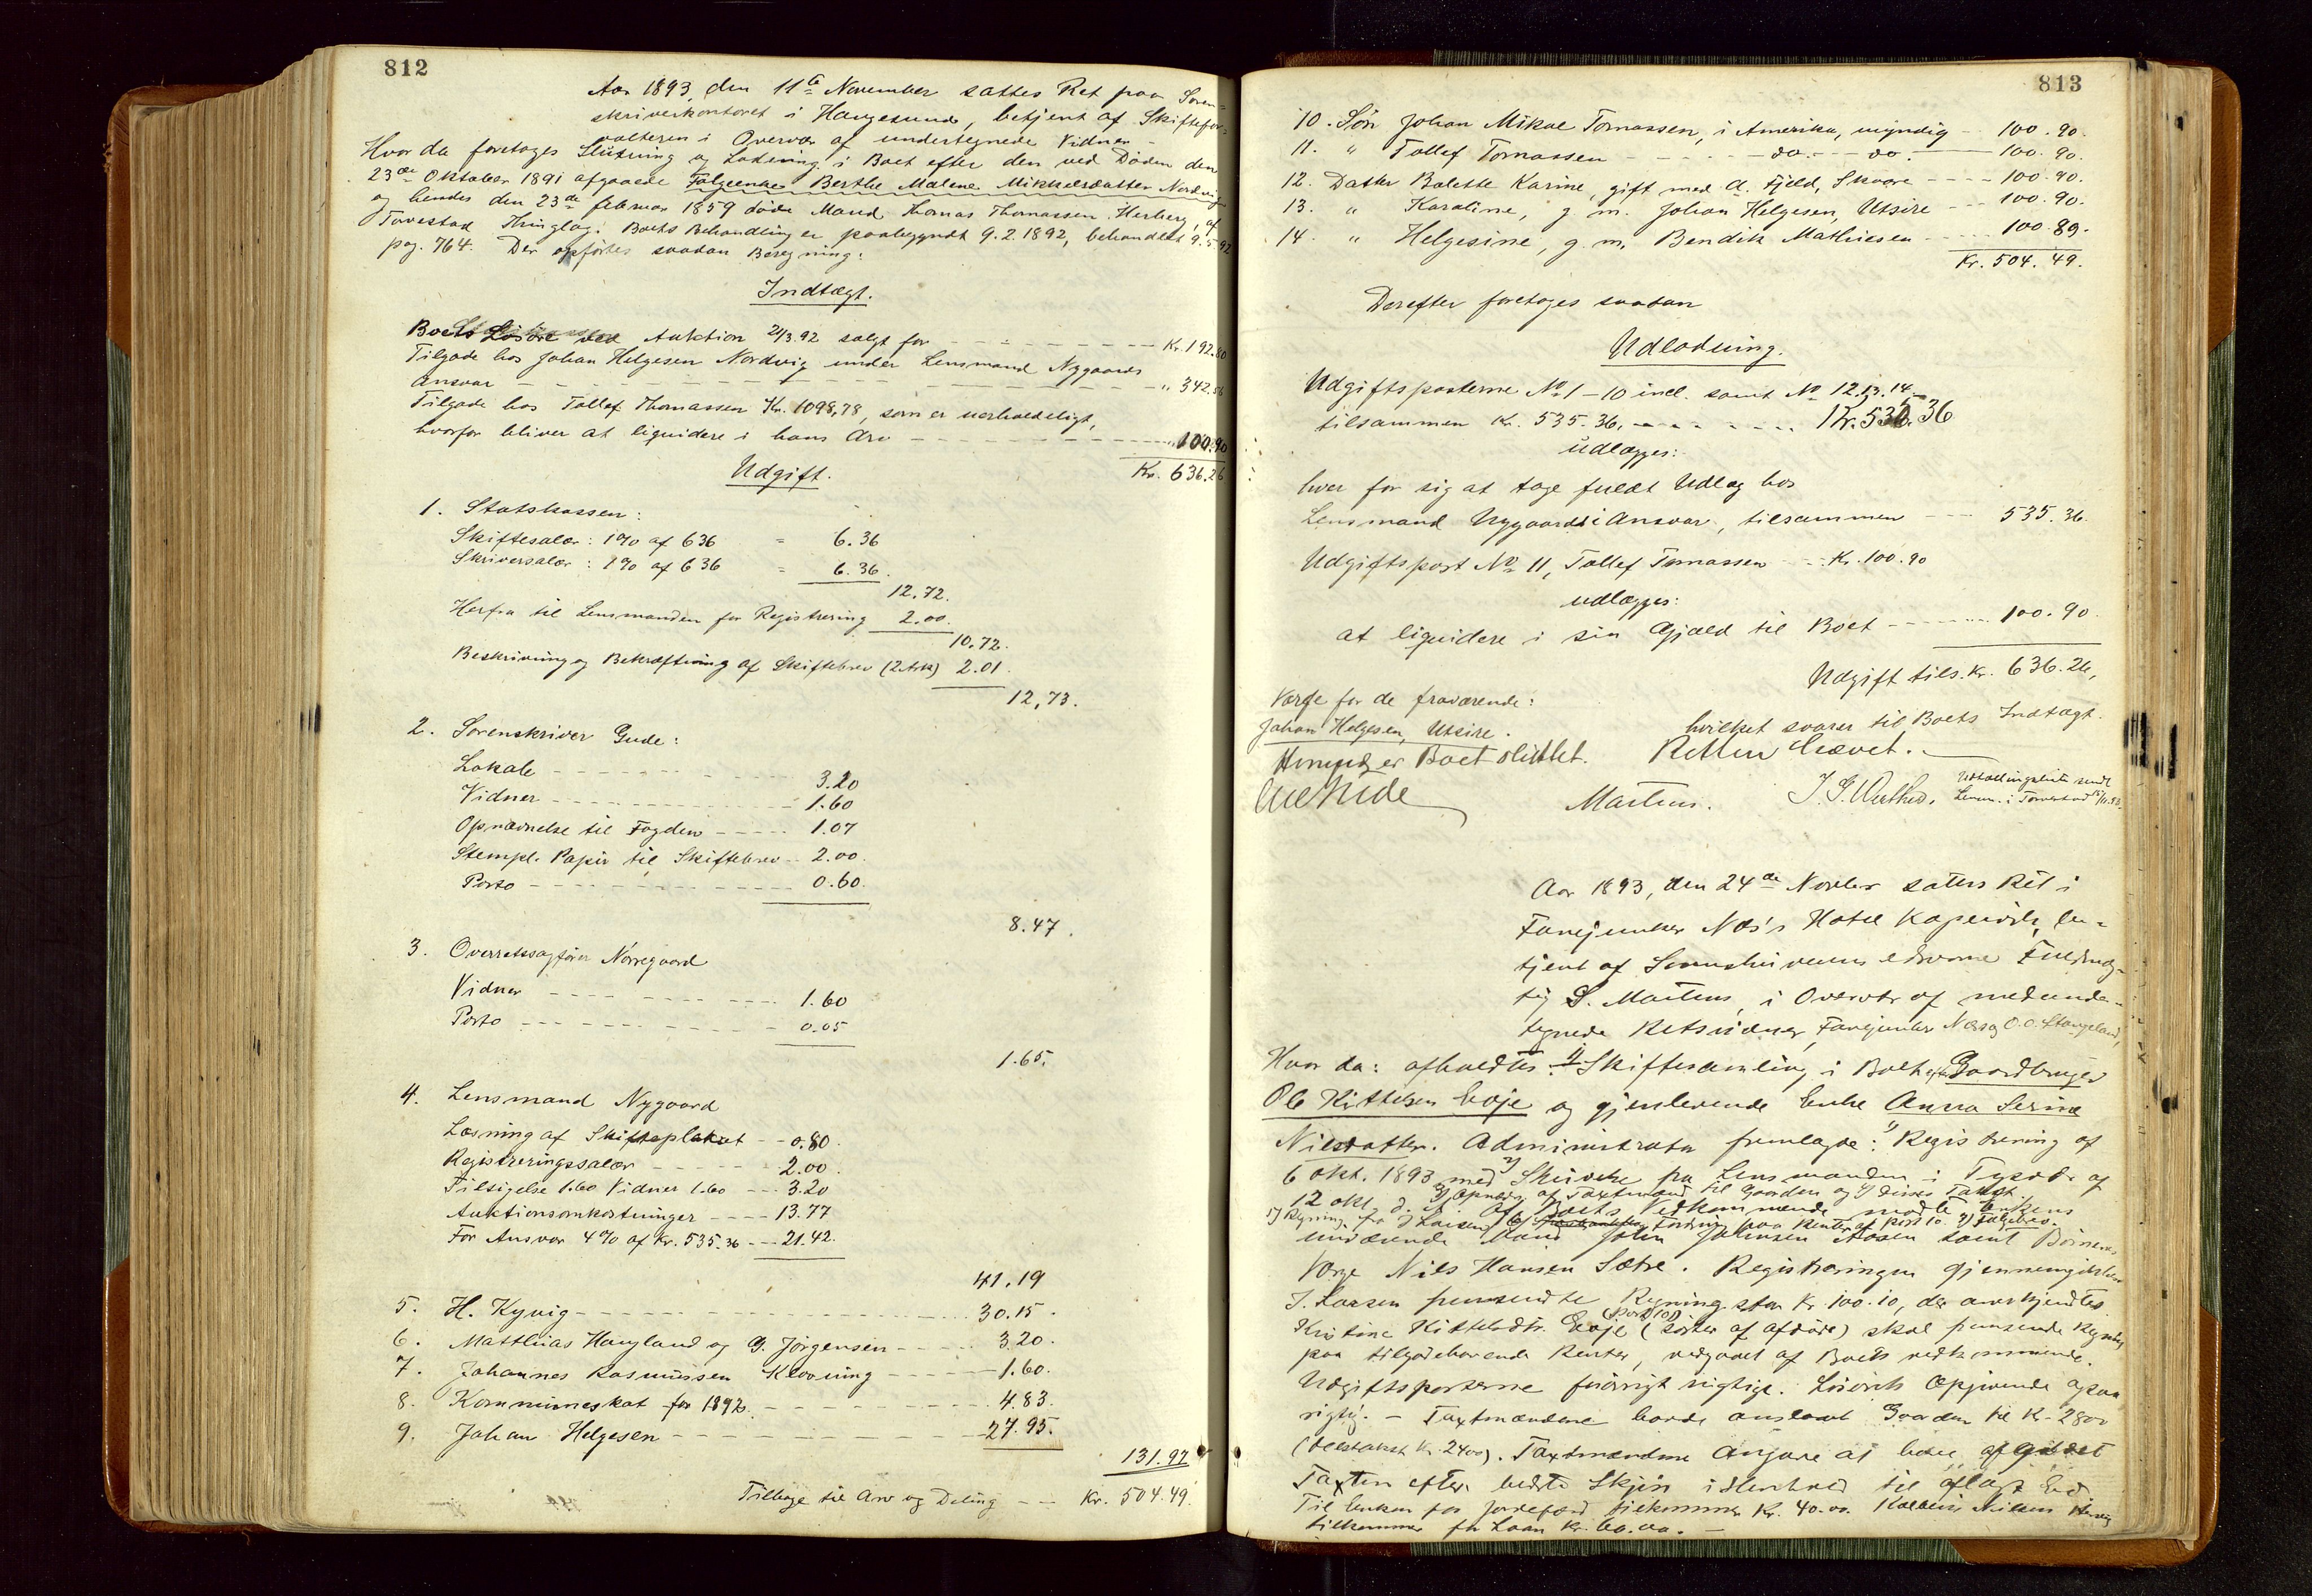 812
Aar 1893, den 11te November sattes Ret paa Soren=
skriverkontoret i Haugesund, betjent af Skiftefor=
valteren i Overvær af undertegnede Vidner -
Hvor da foretages Slutning og Lodning i Boet efter den ved Døden den
23de Oktober 1891 afgaaede Følgeenke Berthe Malene Mikkelsdatter Nordvig
og hendes den 23de februar 1859 døde Mand Thomas Thomassen Herberg, af
Torvestad Thinglag. Boets Behandling er paabegyndt 9.2.1892, behandlet 9.5.92
pag. 764. Der opførtes saadan Beregning:
Indtægt.
Boets Løsøre ved Auktion 21/3.92 solgt for - - - Kr. 192.80
Tilgode hos Johan Helgesen Nordvig under Lensmand Nygaards
Ansvar - - - " 342.56
Tilgode hos Tollef Thomassen Kr. 1098,78, som er uerholdeligt,
hvorfor bliver at liquidere i hans Arv - - - " 100.90
Kr. 636.26
Udgift.
1. Statskassen:
Skiftesalær: 1% af 636 = 6.36
Skriversalær: 1% af 636 = 6.36.
12.72.
Herfra til Lensmanden for Registrering 2.00.
10.72.
Beskrivning og Bekræftning af Skiftebrev (2 Ark) 2.01.
12,73.
2. Sorenskriver Gude:
Lokale - - - 3.20
Vidner - - - 1.60
Opnævnelse til Fogden - - - 1.07
Stempl. Papir til Skiftebrev - - 2.00.
Porto - - - 0.60.
8.47.
3. Overretssagfører Nørregaard
Vidner - - - 1.60
Porto - - - 0.05
1.65.
4. Lensmand Nygaard
Læsning af Skifteplakat - - 0.80.
Registreringssalær - - - 2.00.
Tilsigelse 1.60 Vidner 1.60 - - - 3.20
Auktionsomkostninger - - - 13.77
For Ansvar 4% af Kr. 535.36 - - - 21.42.
41.19
5. H. Kyvig - - - 30.15.
6. Matthias Haugland og G. Jørgensen - - - 3.20.
7. Johannes Rasmussen Klovning - - - 1.60.
8. Kommuneskat for 1892. - - - 4.83.
9. Johan Helgesen - - - 27.95.
131.97
Tilbage til Arv og Deling - - Kr. 504.49.
813
10. Søn Johan Mikal Tomassen, i Amerika, myndig - 100.90.
11. " Tollef Tomassen - - - do. - do. - 100.90.
12. Datter Bolette Karine, gift med A. Fjeld, Skaare - - - 100.90.
13. " Karoline, g. m. Johan Helgesen, Utsire - - - 100.90.
14. " Helgesine, g. m. Bendik Mathiesen - - - 100.89.
Kr. 504.49.
Derefter foretoges saadan
Udlodning.
Udgiftsposterne No 1-10 incl. samt No 12.13.14.
tilsammen Kr. 535.36. - - - Kr. 535.36
udlægges:
hver for sig at tage fuldt Udlæg hos
Lensmand Nygaards i Ansvar, tilsammen - - - 535.36.
Udgiftspost No 11, Tollef Tomassen - - - Kr. 100.90
udlægges:
at liquidere i sin Gjæld til Boet - - - 100.90.
Udgift tils. Kr. 636.26,
hvilket svarer til Boets Indtægt.
Værge for de fraværende:
Johan Helgesen, Utsire.
Hermed er Boet sluttet. Retten hævet. -
Martens.
Udlodningsliste sendt
Lensm. i Torvestad
Aar 1893, den 24de Novbr sattes Ret i
Fanejunker Næs's Hotel Kopervik, be=
tjent af Sorenskriverens edsvorne Fuldmæg-
tig S. Martens, i Overvær af medunder-
tegnede Retsvidner, Fanejunker Næs og O. O. Stangeland,
Hvor da: afholdtes Skiftesamling i Boet efter Gaardbruger
Ole Kittelsen Eoje og gjenlevende Enke Anna Serine
Nilsdatter. Administrator fremlagde: 1) Registrering af
6 Okt. 1893 med 2) Skrivelse fra Lensmanden i Tysvær af
12 okt. d. A. 3) Opnævn. af Taxtmænd til Gaarden og 4) disses Takst.
Af Boets Vedkommende mødte Enkens
5) Regning fra J. Larsen 6) Fordring paa Renter af Post 10. 7) Følgebrev.
nuværende Mand John Johnsen Aasen samt Børnenes
Værge Nils Hansen Sætre. Registreringen gjennemgikkes
J. Larsen fremsendte Regning stor Kr. 100.10, der anerkjendtes
(Post 10)
Kristine Kittelsdtr. Eoje (søster af afdøde) skal fremsende Regning
paa tilgodehavende Renter, vedgaaet af Boets vedkommende.
Udgiftsposterne forøvrigt rigtige. Løsørets Opgivende ogsaa
rigtig. - Taxtmændene havde ansat Gaarden til K. 2800
(Deelstakst Kr. 2400). Taxtmændene Angave at have afgivet
Taxten efter bedste Skjøn i Henhold til aflagt Ed.
Til Enken for Jordefærd tilkommer Kr. 40.00.
tilkommer for Laan Kr. 60.00. -